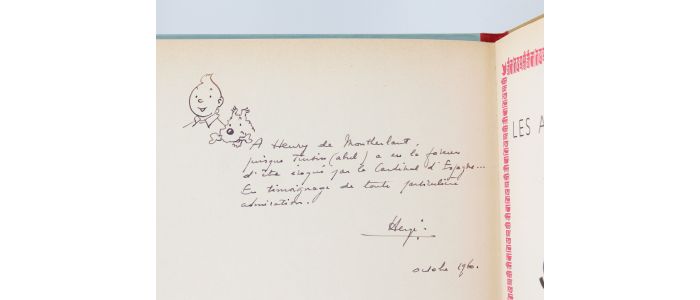 A Henry de Montherlant,
puisque Tintin a eu la faveur
d'être évoqué par le Cardinal d'Espagne...
En témoignage de toute particulière
admiration.
Hergé.
octobre 1960.
LES A